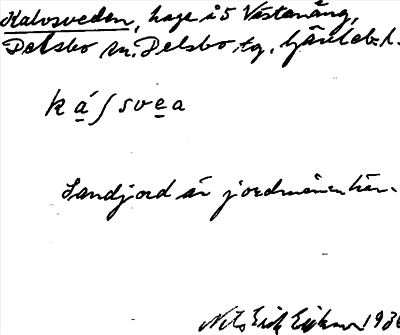 Kalvsveden, hage i 5 Västanäng,
Delsbo sn. Delsbo tg. Gävleb. l.
ká̱ʃsve̱a
Sandjord är jordmånen här.
Nils Erik